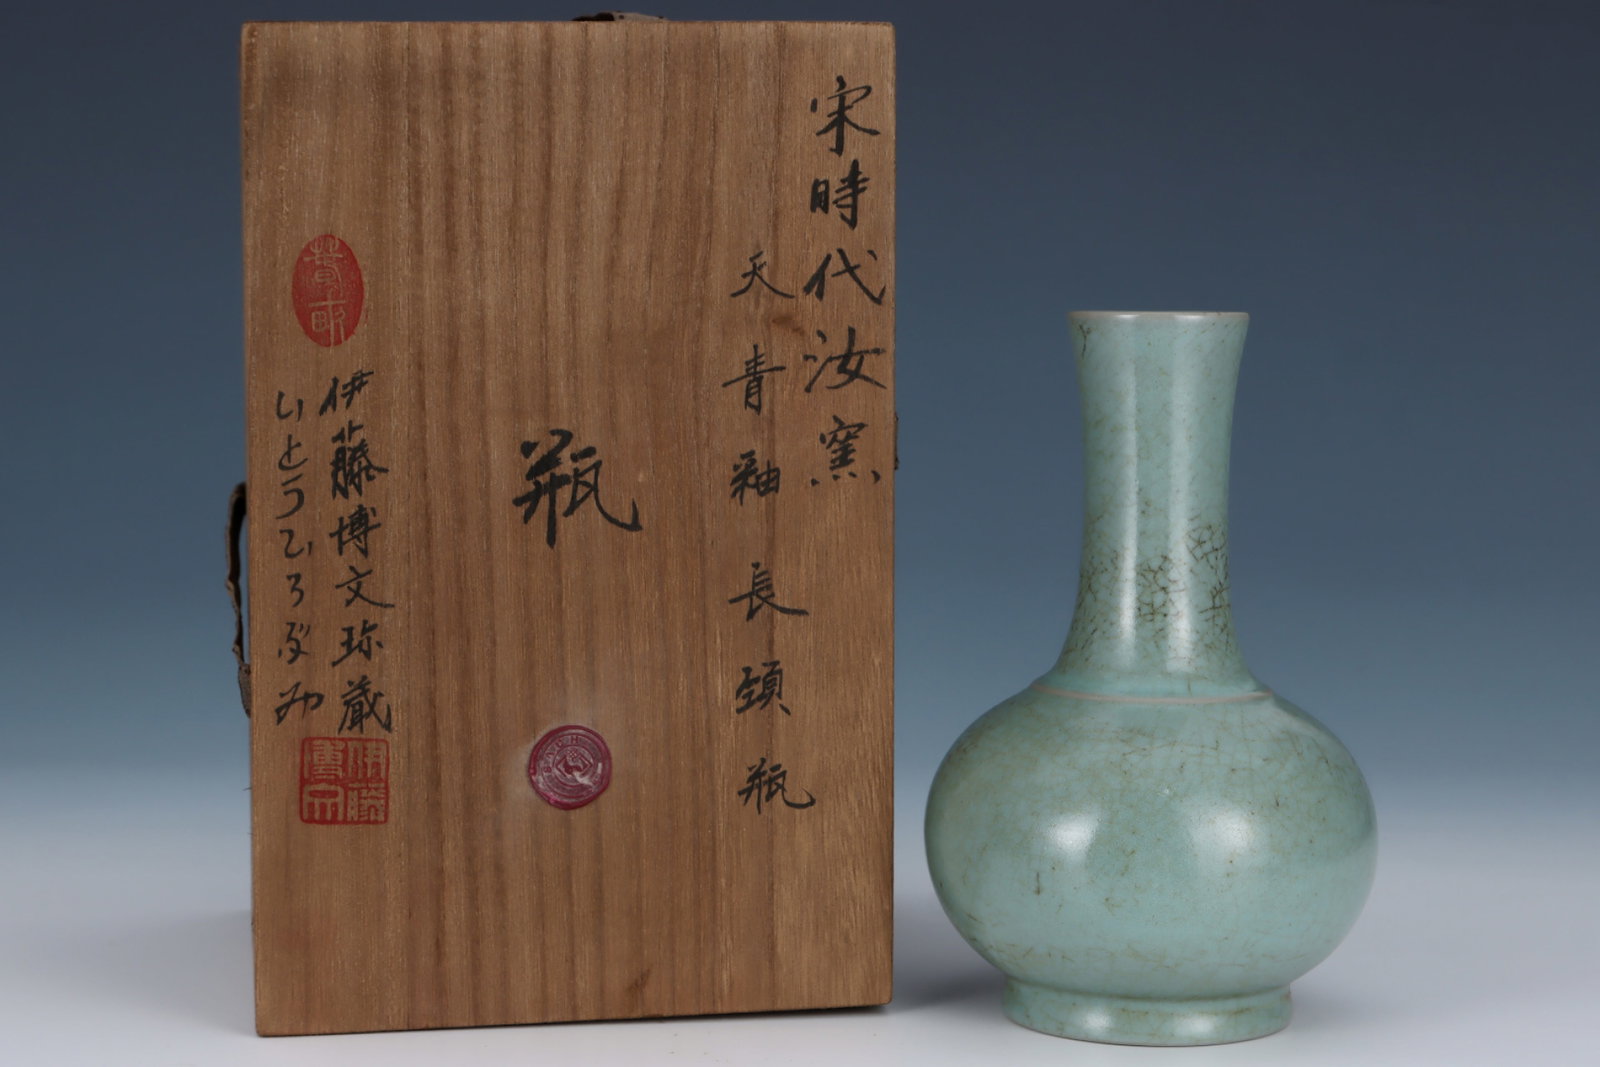 宋時代汝窯
天青釉長頸瓶
瓶
伊藤博文珎蔵
いとうひろぶみ
伊藤
博文